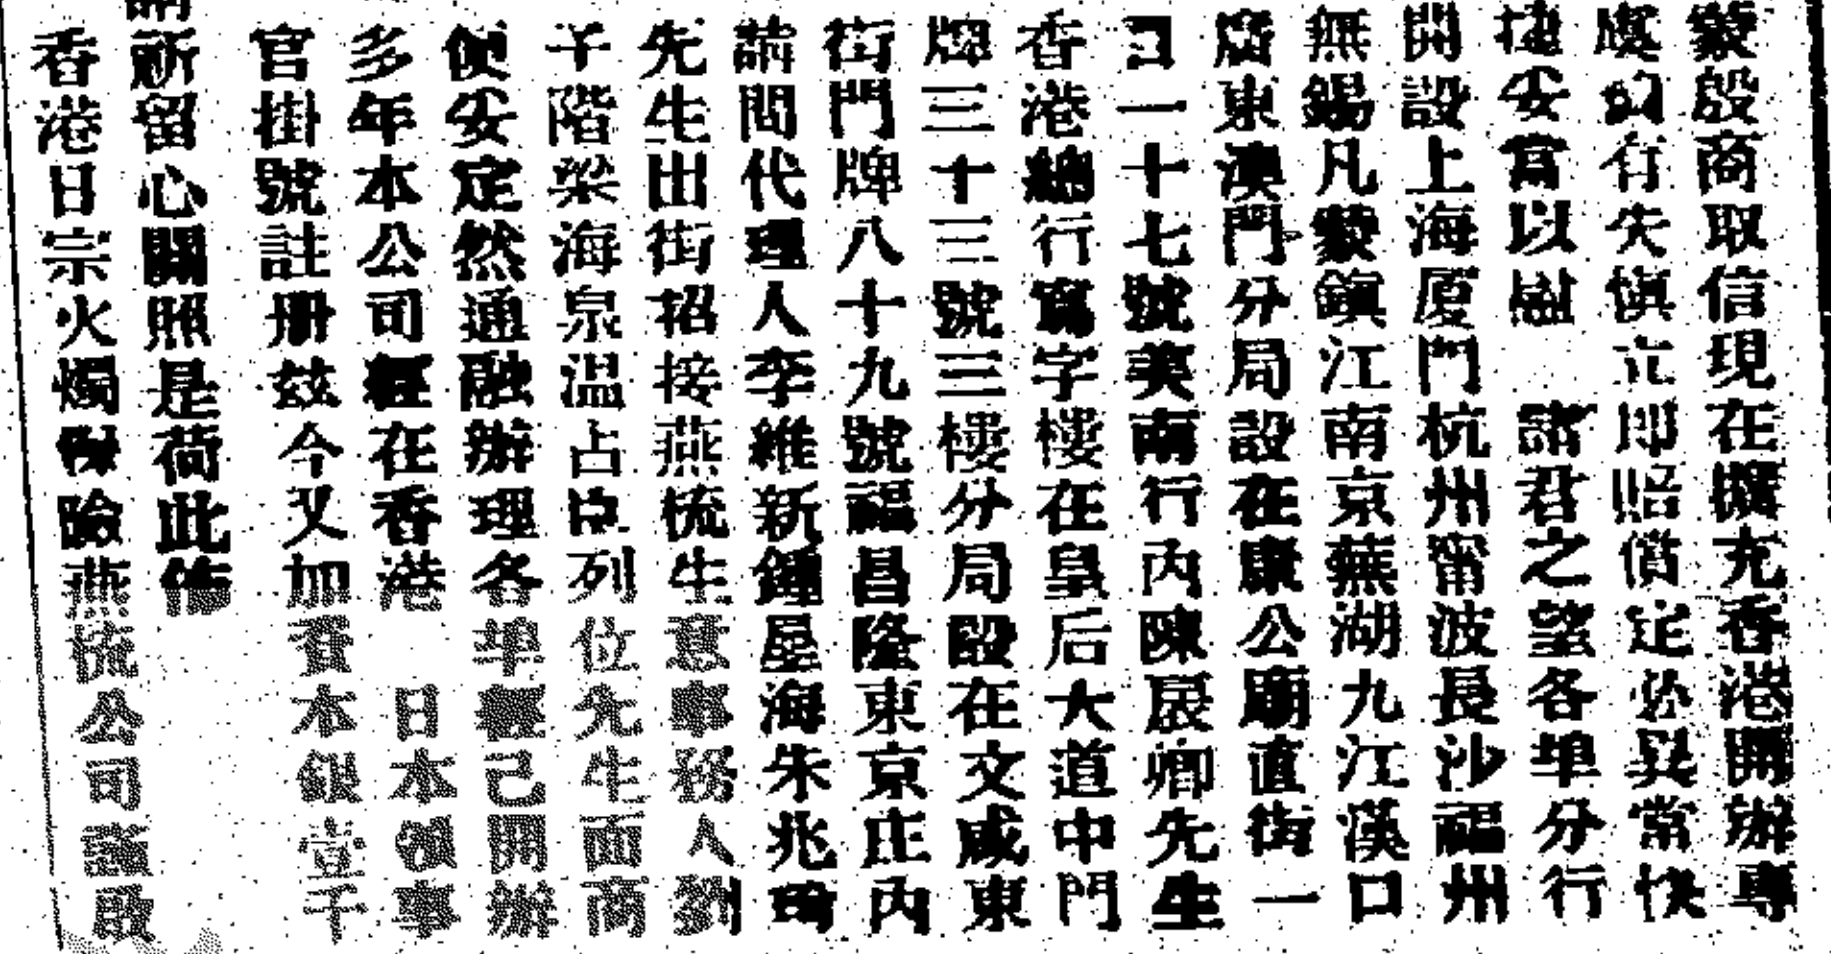 蒙殷商取信現在擴充香港開辦專
處如有失慎立即賠償定必異常快
捷妥當以慰　諸君之望各埠分行
開設上海厦門杭州甯波長沙福州
無錫凡蒙鎮江南京蕪湖九江漢口
廣東澳門分局設在康公廟直街一
一十七號美南行內陳展卿先生
香港總行寫字樓在皇后大道中門
牌三十三號三樓分局設在文咸東
街門牌八十九號福昌隆東京庄內
請問代理人李維新鍾星海朱兆琦
先生出街招接燕梳生意事務人劉
干階梁海泉溫占臣列位先生面商
便妥定然通融辦理各埠經已開辦
多年本公司經在香港　日本領事
官掛號註册茲今又加資本銀壹千
祈留心關照是荷此佈
香港日宗火燭保險燕梳公司謹啟